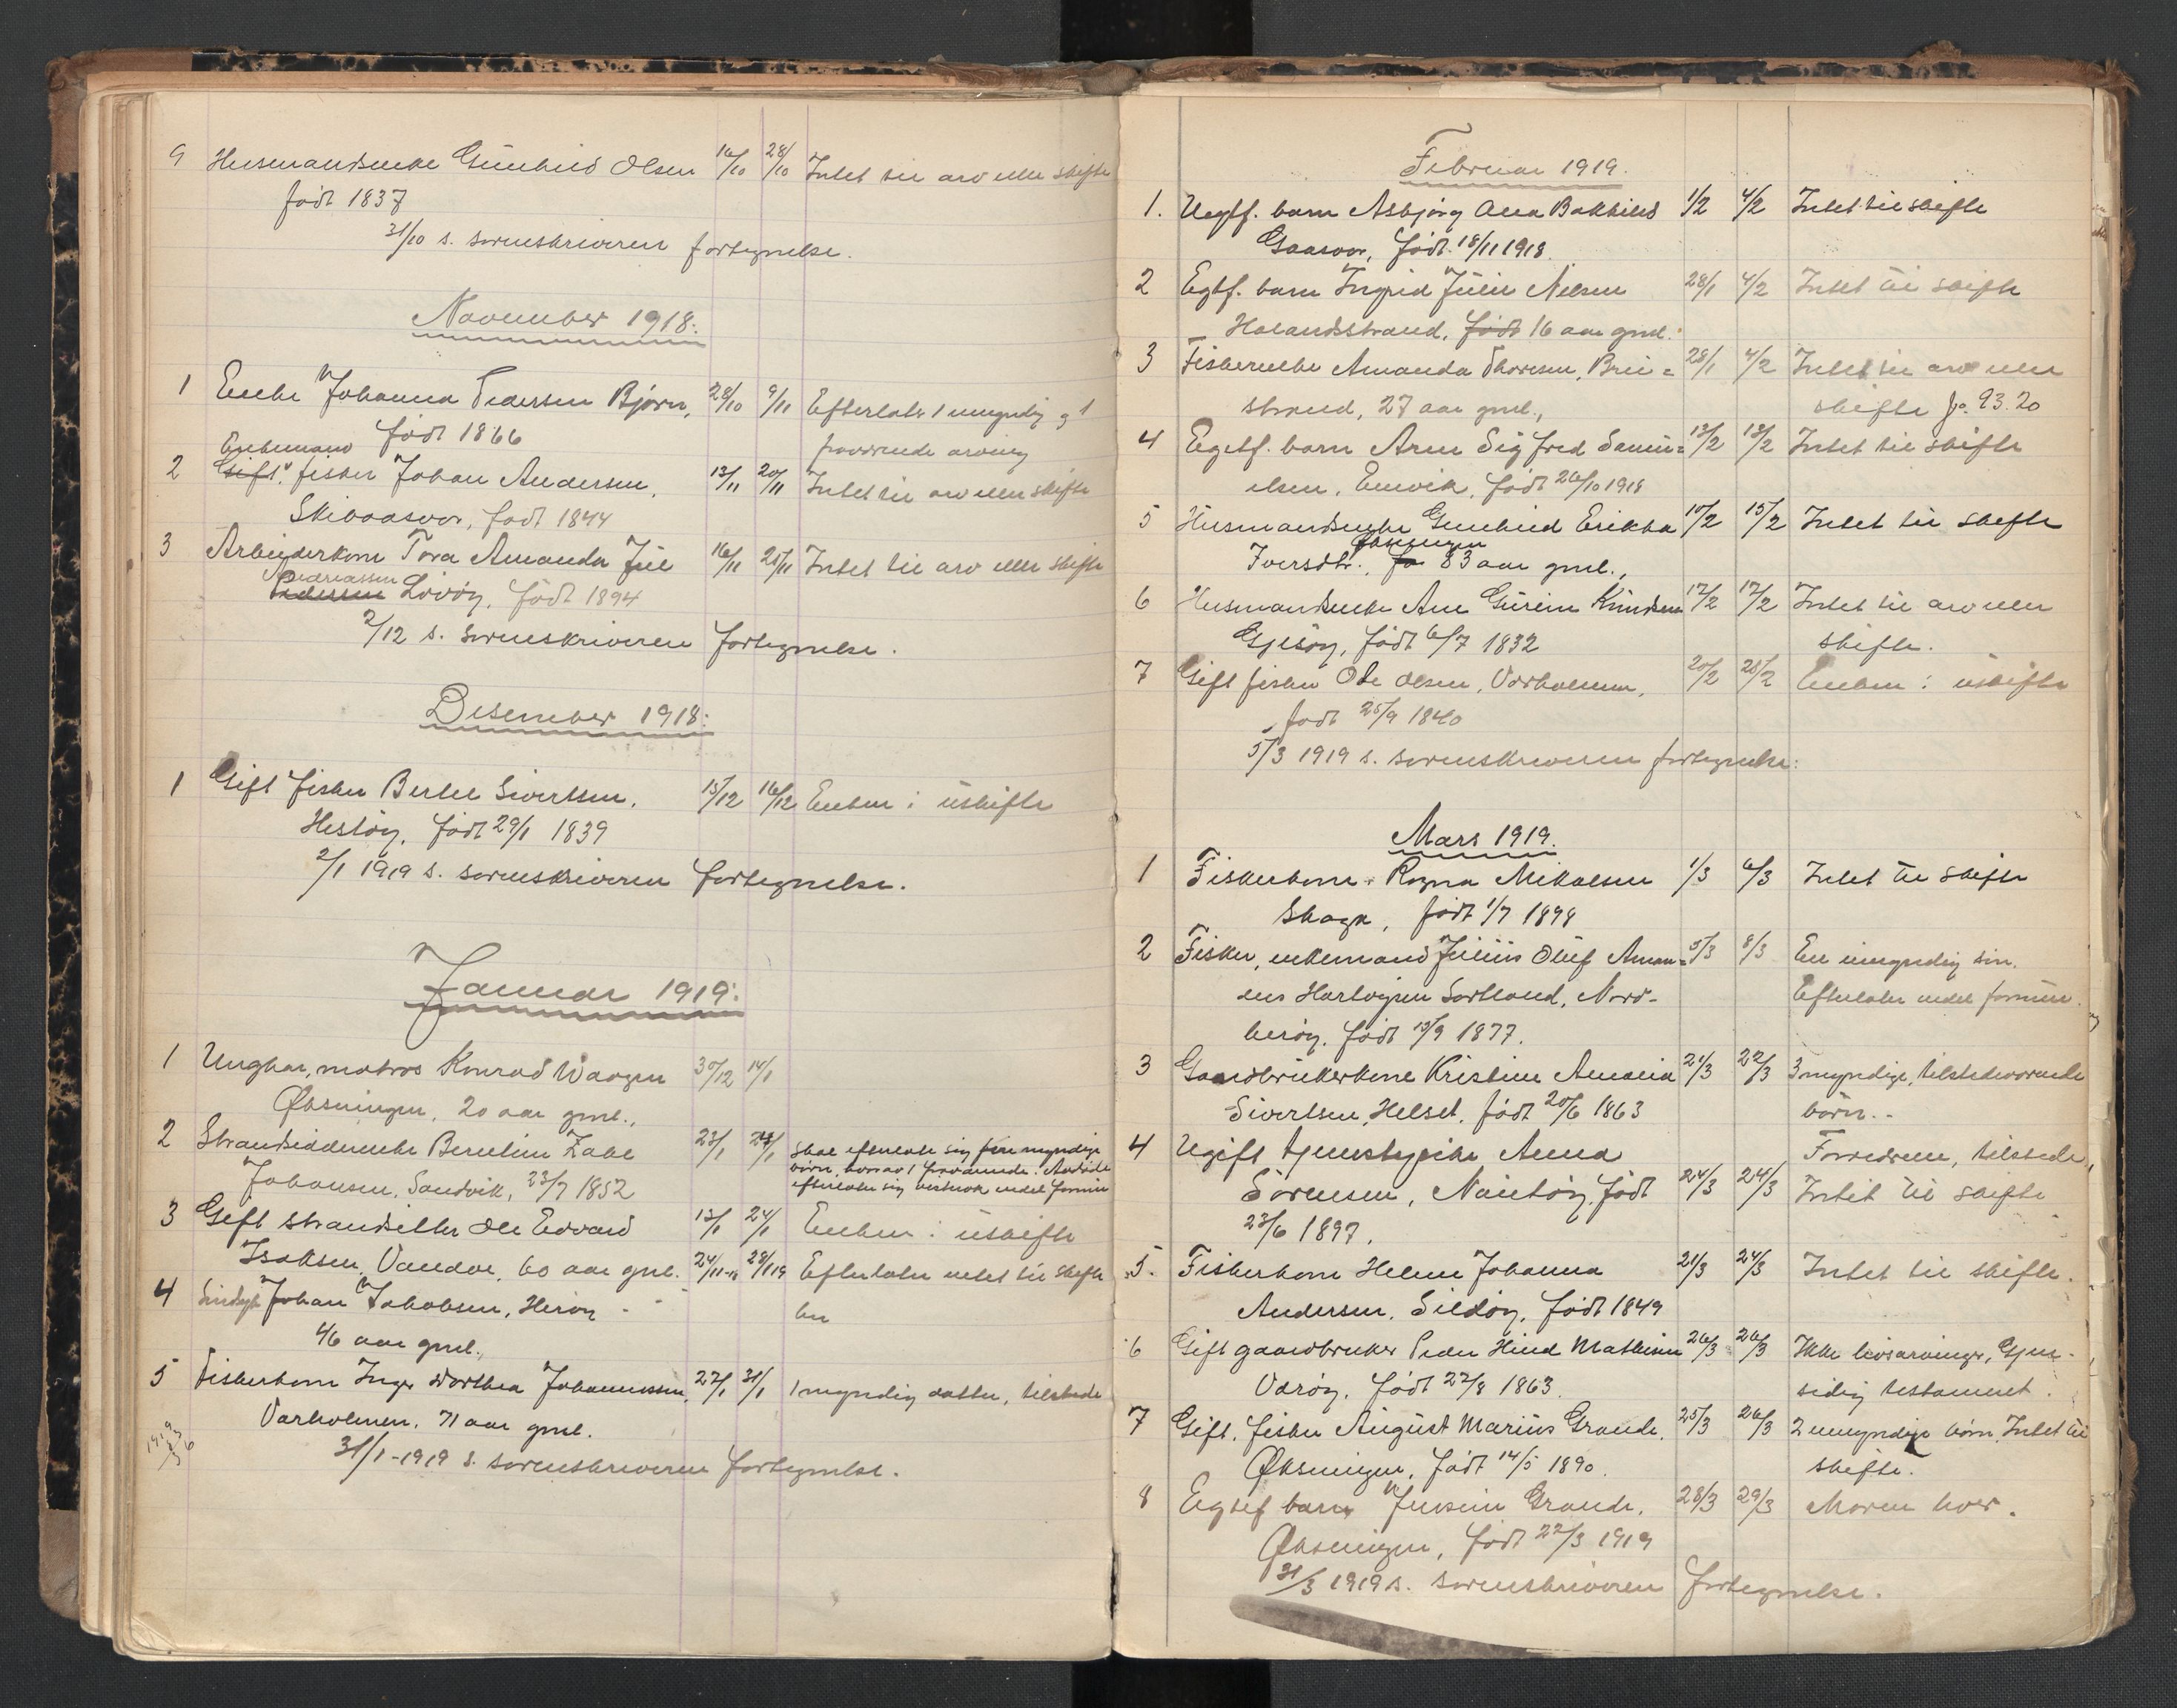 9 Husmandsenke Gunhild Olsen 16/10 28/10 Intet til arv eller skifte
født 1837
31/10 s. sorenskriveren fortegnelse.
November 1918.
1 Enke Johanna Pedersen Bjørn, 28/10 9/11 Efterlater 1 umyndig og 1
født 1866 fraværende arving
Enkemand
2 Gift fisker Johan Andersen, 13/11 20/11 Intet til arv eller skifte
Skibaasvær, født 1844
3 Arbeiderkone Tora Amanda Jul 16/11 25/11 Intet til arv eller skifte
Andreassen
Pedersen Løvøy, født 1894
2/12 s. sorenskriveren fortegnelse.
Desember 1918.
1 Gift fisker Bertel Sivertsen, 15/12 16/12 Enken i uskifte
Hestøy, født 29/1 1839
2/1 1919 s. sorenskriveren fortegnelse.
Januar 1919.
1 Ungkar, matros Konrad Waagen 30/12 14/1
Øksningen, 20 aar gml.,
2 Strandsidderenke Berntine Zabe 23/1 24/1 Skal efterlate sig fire myndige
børn, hvorav 1 fraværende. Avdøde
Johansen, Sandvik, 23/7 1852 efterlater sig endel formue
3 Gift strandsitter Ole Edvard 13/1 24/1 Enken i uskifte
Isaksen, Vandve, 60 aar gml. 24/11-18 28/1 19 Efterlater intet til skifte
4 Johan Jakobsen, Herøy
46 aar gml.,
5 Fiskerkone Inger Dorthea Johannessen, 27/1 31/1 1 myndig datter, tilstede
Varholmen, 71 aar gml.
31/1-1919 s. sorenskriveren fortegnelse.
Februar 1919.
1. Uegtf. barn Asbjørg Alea Bakkild 1/2 4/2 Intet til skifte
Gaasvær, født 18/11 1918.
2 Egtf. barn Ingrid Julie Nilsen 28/1 4/2 Intet til skifte
Hølandsstrand, født 16 aar gml.
3 Fiskerenke Amanda Thoresen, Brei= 28/1 4/2 Intet til arv eller
strand, 27 aar gml., skifte 93.20
4 Egtef. barn Arne Sigfred Samu= 13/2 13/2 Intet til skifte
elsen, Envik, født 26/10 1918
5 Husmandsenke Gunhild Erikka 10/2 15/2 Intet til skifte
Øksningen
Iversdtr., fø 83 aar gml.,
6 Husmandsenke Ane Gurine Knudsen 17/2 17/2 Intet til arv eller
Gjesøy, født 6/7 1832 skifte.
7 Gift fisker Ole Olsen, Varholmen, 20/2 25/2 Enken i uskifte
født 25/9 1840
5/3 1919 s. sorenskriveren fortegnelse.
Mars 1919.
1 Fiskerkone Ragna Mikalsen 1/3 6/3 Intet til skifte
Skaga, født 1/7 1898
2 Fisker, enkemand Julius Oluf Aman= 5/3 8/3 En umyndig søn.
dus Hartvigsen Sørland, Nord- Efterlater endel formue.
herøy, født 15/9 1877.
3 Gaardbrukerkone Kristine Amalia 21/3 22/3 3 myndige, tilstedeværende
Sivertsen, Helset, født 20/6 1863 børn.
4 Ugift tjenestepike Anna Forældrene, tilstede,
Sørensen, født 24/3 24/3 Intet til skifte
23/6 1897.
5. Fiskerkone Helene Johanna 21/3 24/3 Intet til skifte.
Andersen, Sildøy, født 1849
6 Gift gaardbruker Peder Hind Mathisen 26/3 26/3 Ikke livsarvinger, Gjen-
Ødrøy, født 27/8 1863. sidig testament.
7 Gift, fisker August Marius Grande, 25/3 26/3 2 umyndige børn, Intet til
Øksningen, født 14/5 1890. skifte.
8 Egtef barn Jensine Grande, 28/3 29/3 Moren lever.
Øksningen, født 22/3 1919
31/3 1919 s. sorenskriveren fortegnelse.